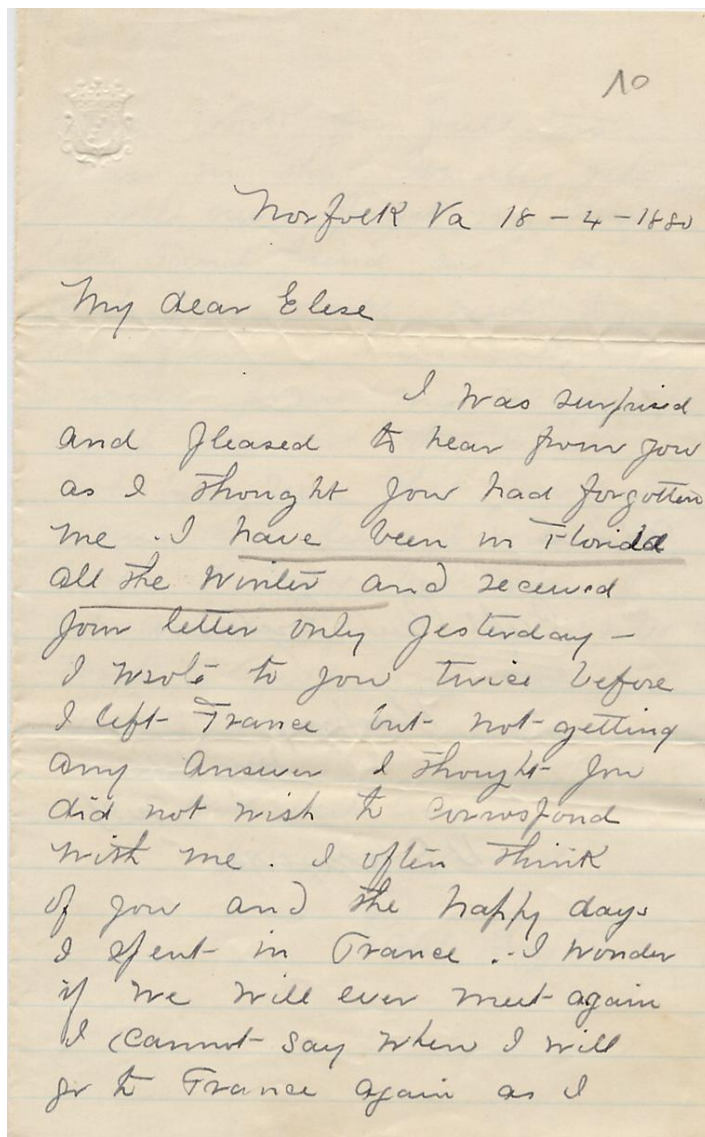 10
Norfolk Va 18 - 4 - 1880
My dear Elise
I was surprised
and pleased to hear from you
as I thought you had forgotten
me . I have been in Florida
all the Winter and received
your letter only yesterday -
I wrote to you twice before
I left France but not getting
any answer I thought you
did not wish to correspond
with me . I often think
of you and the happy days
I spent in France . - I wonder
if we will ever meet again
I cannot say when I will
go to France again as I